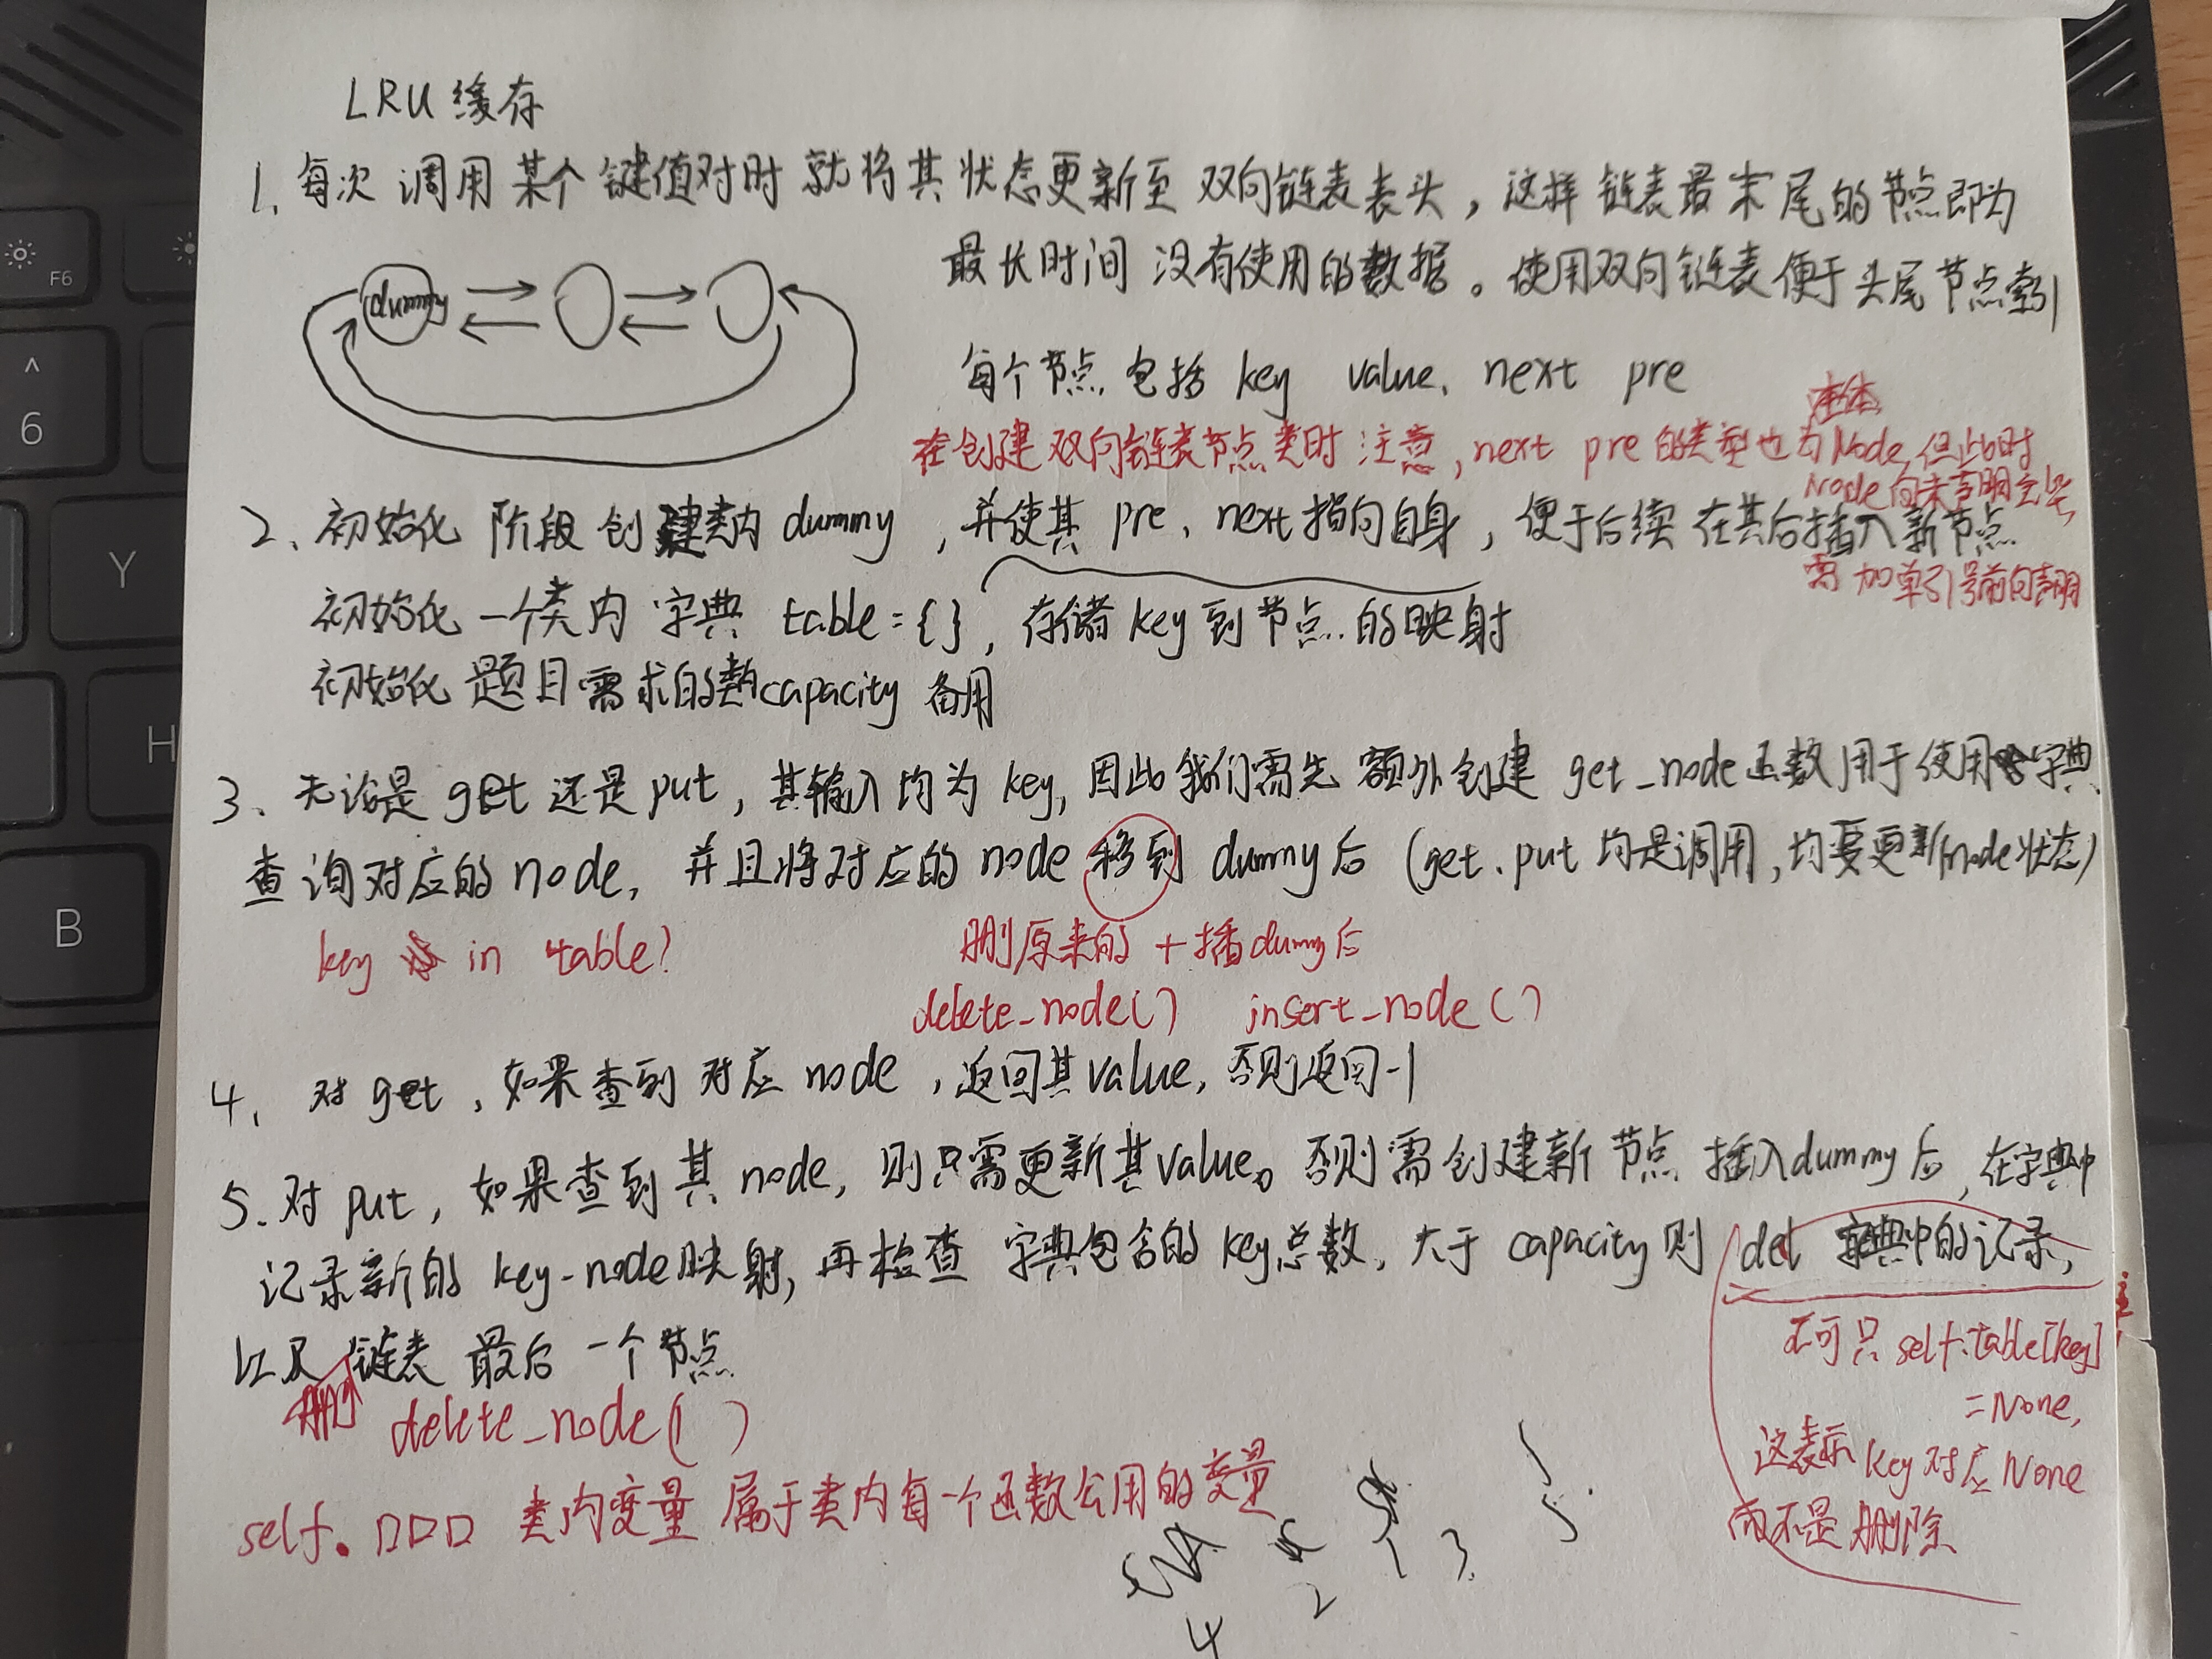 LRU缓存
1、每次调用某个键值对时就将其状态更新至双向链表表头，这样链表最末尾的节点即为
最长时间没有使用的数据。使用双向链表便于头尾节点索引
dummy
每个节点包括 key value、next pre
在创建双向链表节点类时注意，next pre的类型也为Node，但此时
Node尚未声明完毕，
需加单引号前向声明
2、初始化阶段创建类内dummy，并使其pre、next指向自身，便于后续在其后插入新节点
初始化一个类内字典 table={}，存储key到节点的映射
初始化题目需求的类内capacity备用
3、无论是get还是put，其输入均为key，因此我们需先额外创建get_node函数用于使用字典
查询对应的node，并且将对应的node移到dummy后(get、put均是调用，均要更新node状态)
key in table?
删原来的+插dummy后
delete_node() insert_node()
4、对get，如果查到对应node，返回其value，否则返回-1
5、对put，如果查到其node，则只需更新其value。否则需创建新节点插入dummy后，在字典中
记录新的key-node映射，再检查字典包含的key总数，大于capacity则del字典中的记录，
以及链表最后一个节点
删
delete_node()
注
不可只self.table[key]
=None，
这表示key对应None
而不是删除
self.□□□ 类内变量 属于类内每一个函数公用的变量
1 3
2
4
F6
^
6
Y
H
B